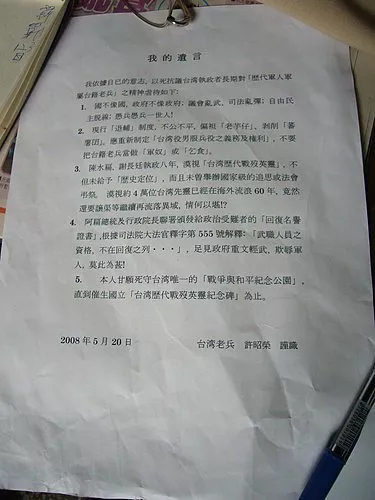 我的遺言
我依據自已的意志,以死抗議台湾執政者長期對「歷代軍人軍
屬台籍老兵」之精神虐待如下:
1. 國不像國,政府不像政府;議會亂武,司法亂彈;自由民
主脫線;愚兵愚兵一世人!
2. 現行「退輔」制度,不公不平,偏袒「老芋仔」,剝削「蕃
薯囝」。應重新制定「台湾役男服兵役之義務及權利」,不要
把台籍老兵當做「軍奴」或「乞食」。
3. 陳水扁、謝長廷執政八年,漠視「台湾歷代戰歿英靈」,不
但未給予「歷史定位」,而且未曾舉辦國家級的追思或法會
弔祭。漠視約4萬位台湾先靈已經在海外流浪60年,竟然
還要讓渠等繼續再流落異域,情何以堪!?
4. 阿扁總統及行政院長聯署頒發給政治受難者的「回復名譽
證書」,根據司法院大法官釋字第555號解釋:「武職人員之
資格,不在回復之列・・・」,足見政府重文輕武,欺辱軍
人,莫此為甚!
5. 本人甘願死守台湾唯一的「戰爭與和平紀念公園」,
直到催生國立「台湾歷代戰歿英靈紀念碑」為止。
2008年5月20日 台湾老兵 許昭榮 謹識